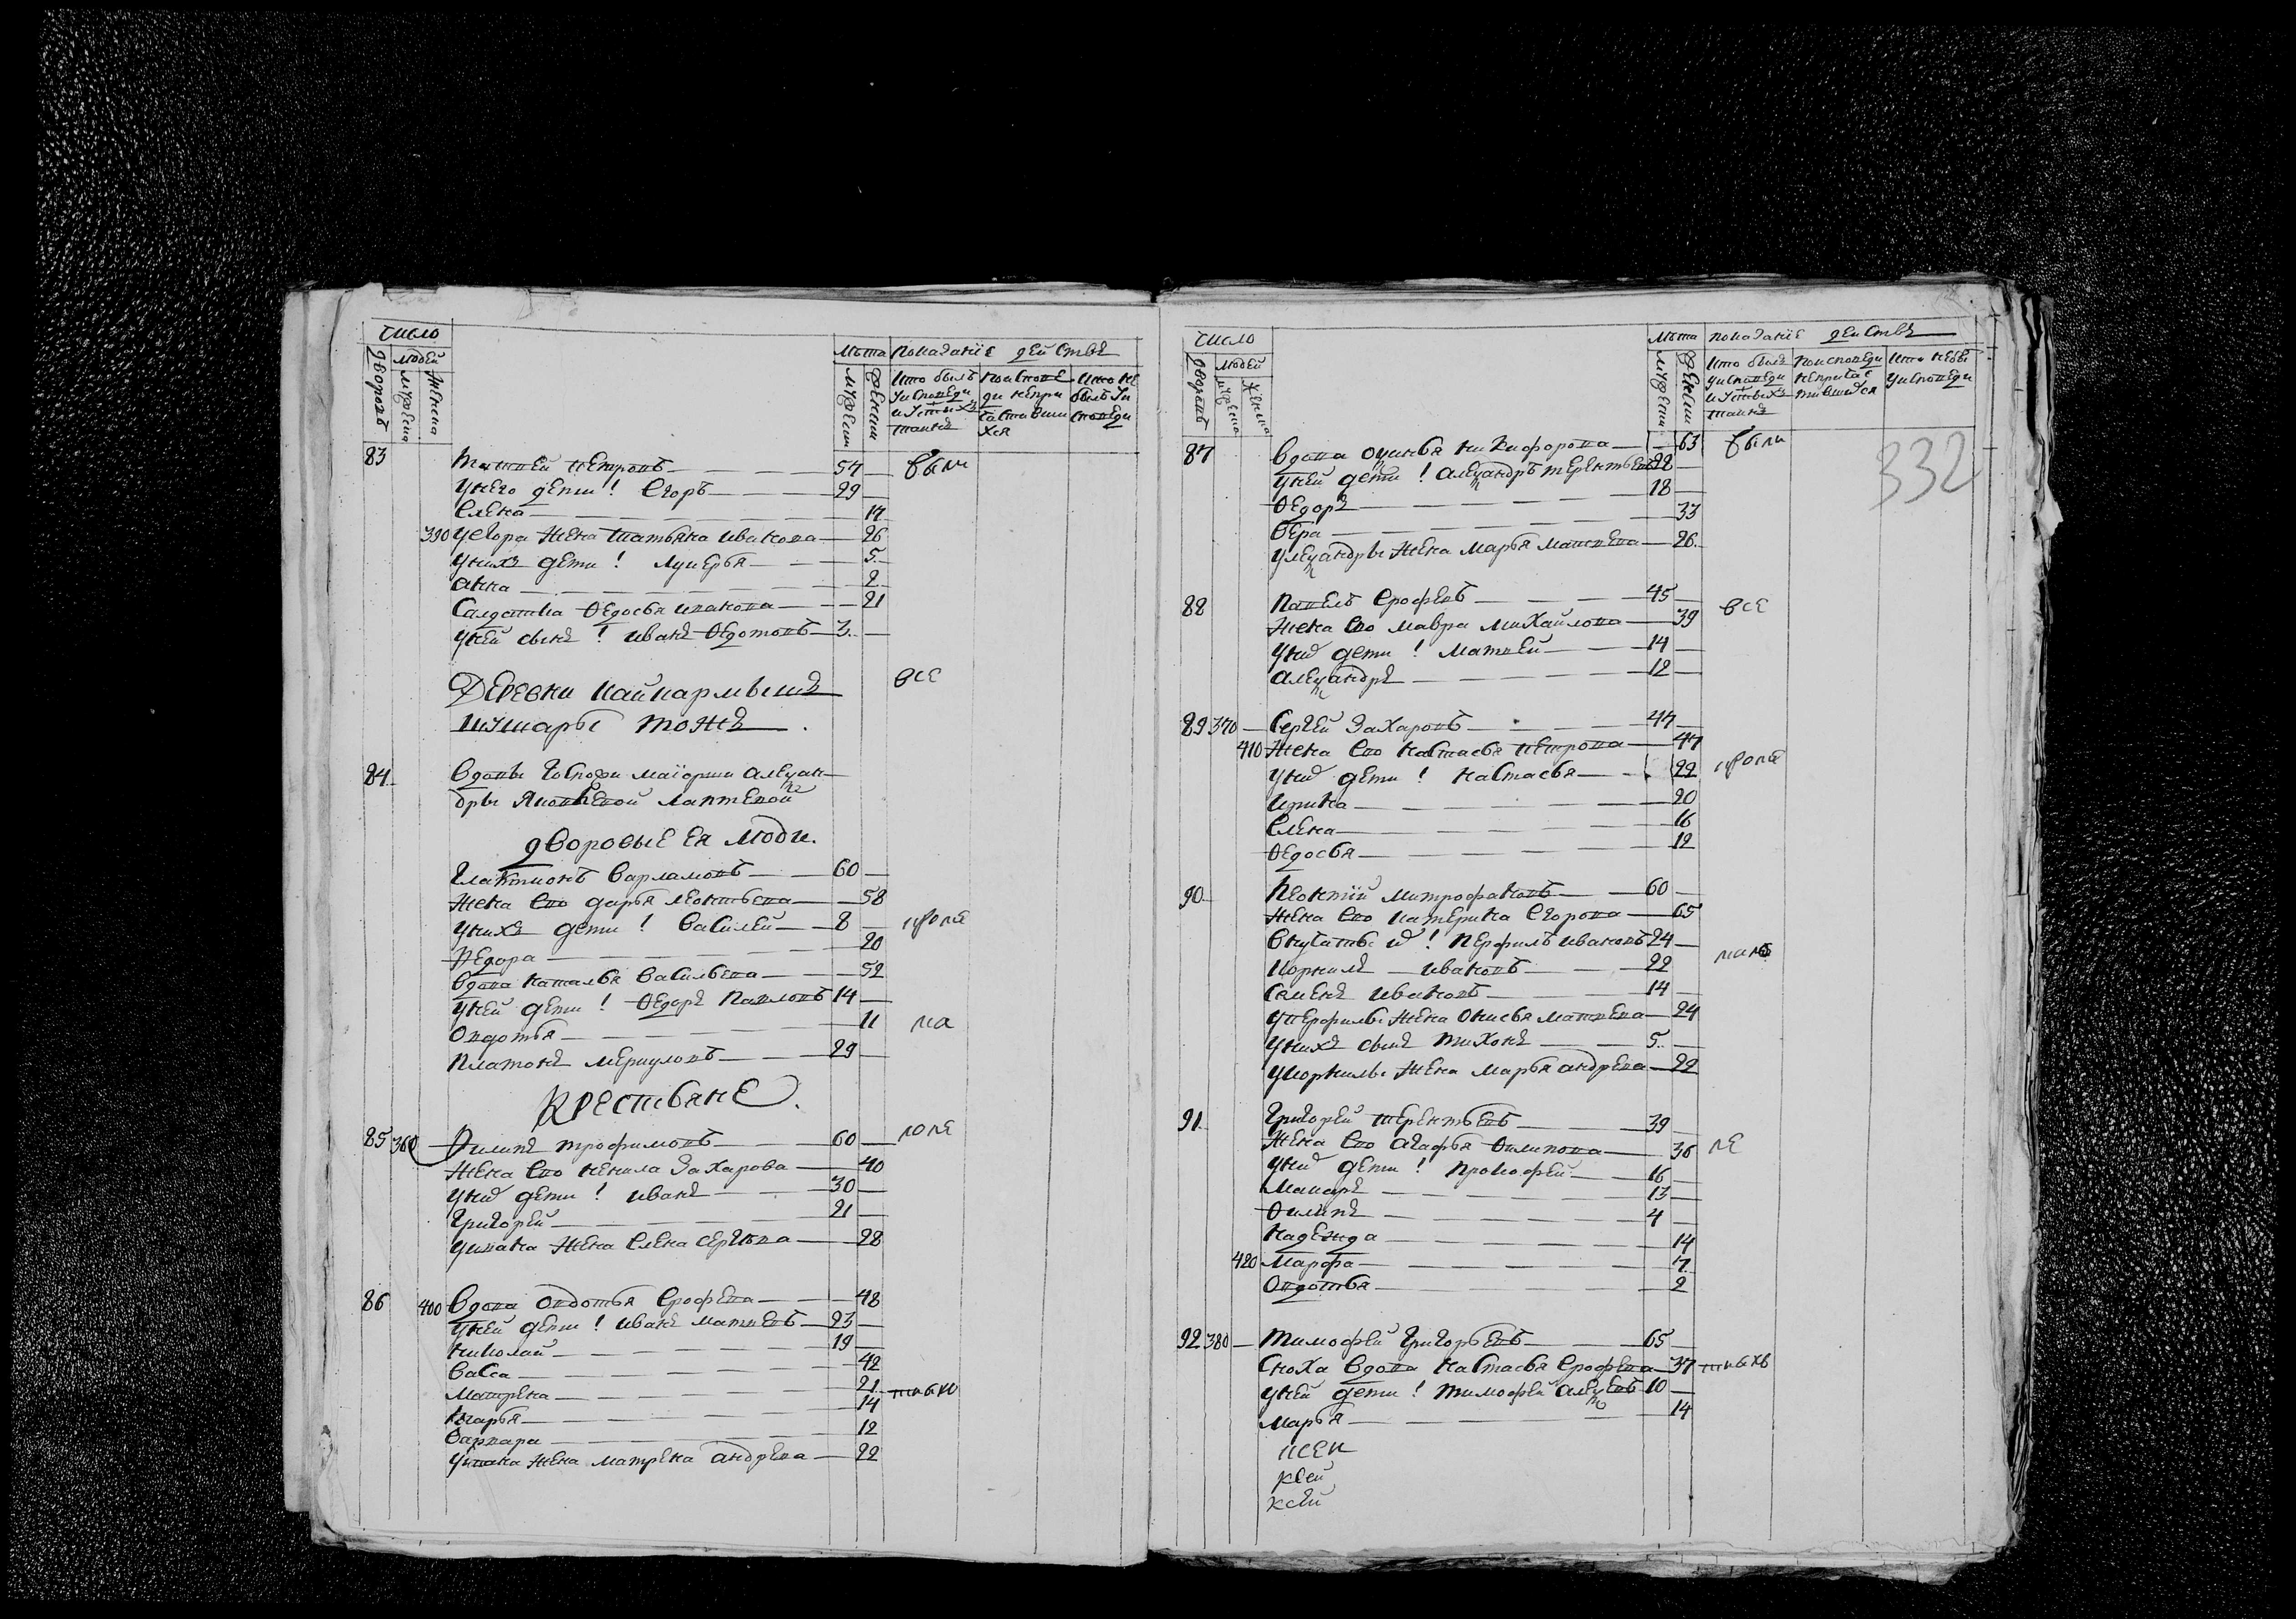 число
дворовъ
людей
мужеска
женска
лѣта
мужски
женски
показанїе действъ
кто былъ у исповеди и у с̃тыхъ таинъ
по исповеди не причастившихся
кто не былъ у исповеди
83 Матвей Петровъ 57 были
У него дети: Егоръ 29
Елена 17
390 У Егора жена Татьяна Иванова 26
У нихъ дети: Лукерья 5
Анна 2
Салдатка Федосья Иванова 21
У ней сынъ: Иванъ Федотовъ 3
Деревни все
тожъ
84 Вдовы госпожи маїорши Алексан-
дры Яковлевой Лаптевой
Дворовые ея люди.
Варламовъ 60
Жена ево Дарья Леонтьева 58
У нихъ дети: Василей 8
Федора 20
Вдова Наталья Васильева 52
У ней дети: Федоръ Павловъ 14
Овдотья 11
Платонъ Меркуловъ 29
Крестьяне
85 360 Филипъ Трофимовъ 60
Жена ево Ненила Захарова 40
У них дети: Иванъ 30
Григорей 21
У Ивана жена Елена Сергѣва 28
86 400 Вдова Овдотья Ерофева 48
У ней дети: Иванъ Матвевъ 23
Николай 19
Васса 42
Матрена 21
Марья 14
Варвара 12
У Ивана жена Матрена Андрева 22
число
дворовъ
людей
мужеска
женска
лѣта
мужски
женски
показанїе действъ
кто былъ у исповеди и у с̃тыхъ таинъ
по исповеди не причастившися
кто не былъ у исповеди
332
87 Вдова Никифорова 63 были
У ней дети: Александръ Терентьевъ 28
Федоръ 18
Вера 33
У Александры жена Марья Матвева 26
88 Павелъ Ерофевъ 45 все
Жена ево Мавра Михайлова 39
У них дети: Матвей 14
Александръ 12
89 370 Сергей Захаровъ 47
410 Жена ево Настасья Петрова 47
У них дети: Настасья 22
Ирина 20
Елена 16
Федосья 12
90 Леонтїй Митрофановъ 60
Жена ево Катерина Егорова 65
Внучаты их: Перфилъ Ивановъ 24
Корнилъ Ивановъ 22
Семенъ Ивановъ 14
У Перфилы жена Матвева 24
У нихъ сынъ Тихонъ 5
У Корнилы жена Марья Андрева 22
91 Григорей Терентьевъ 39
Жена ево Агафья Филипова 36
У них дети: Прокофей 16
Макаръ 13
Филипъ 4
Надежда 14
420 Марфа 7
Овдотья 2
92 380 Тимофей Григорьевъ 65
Сноха вдова Настасья Ерофева 37
У ней дети: Тимофей 10
Марья 14
ксей
ксей